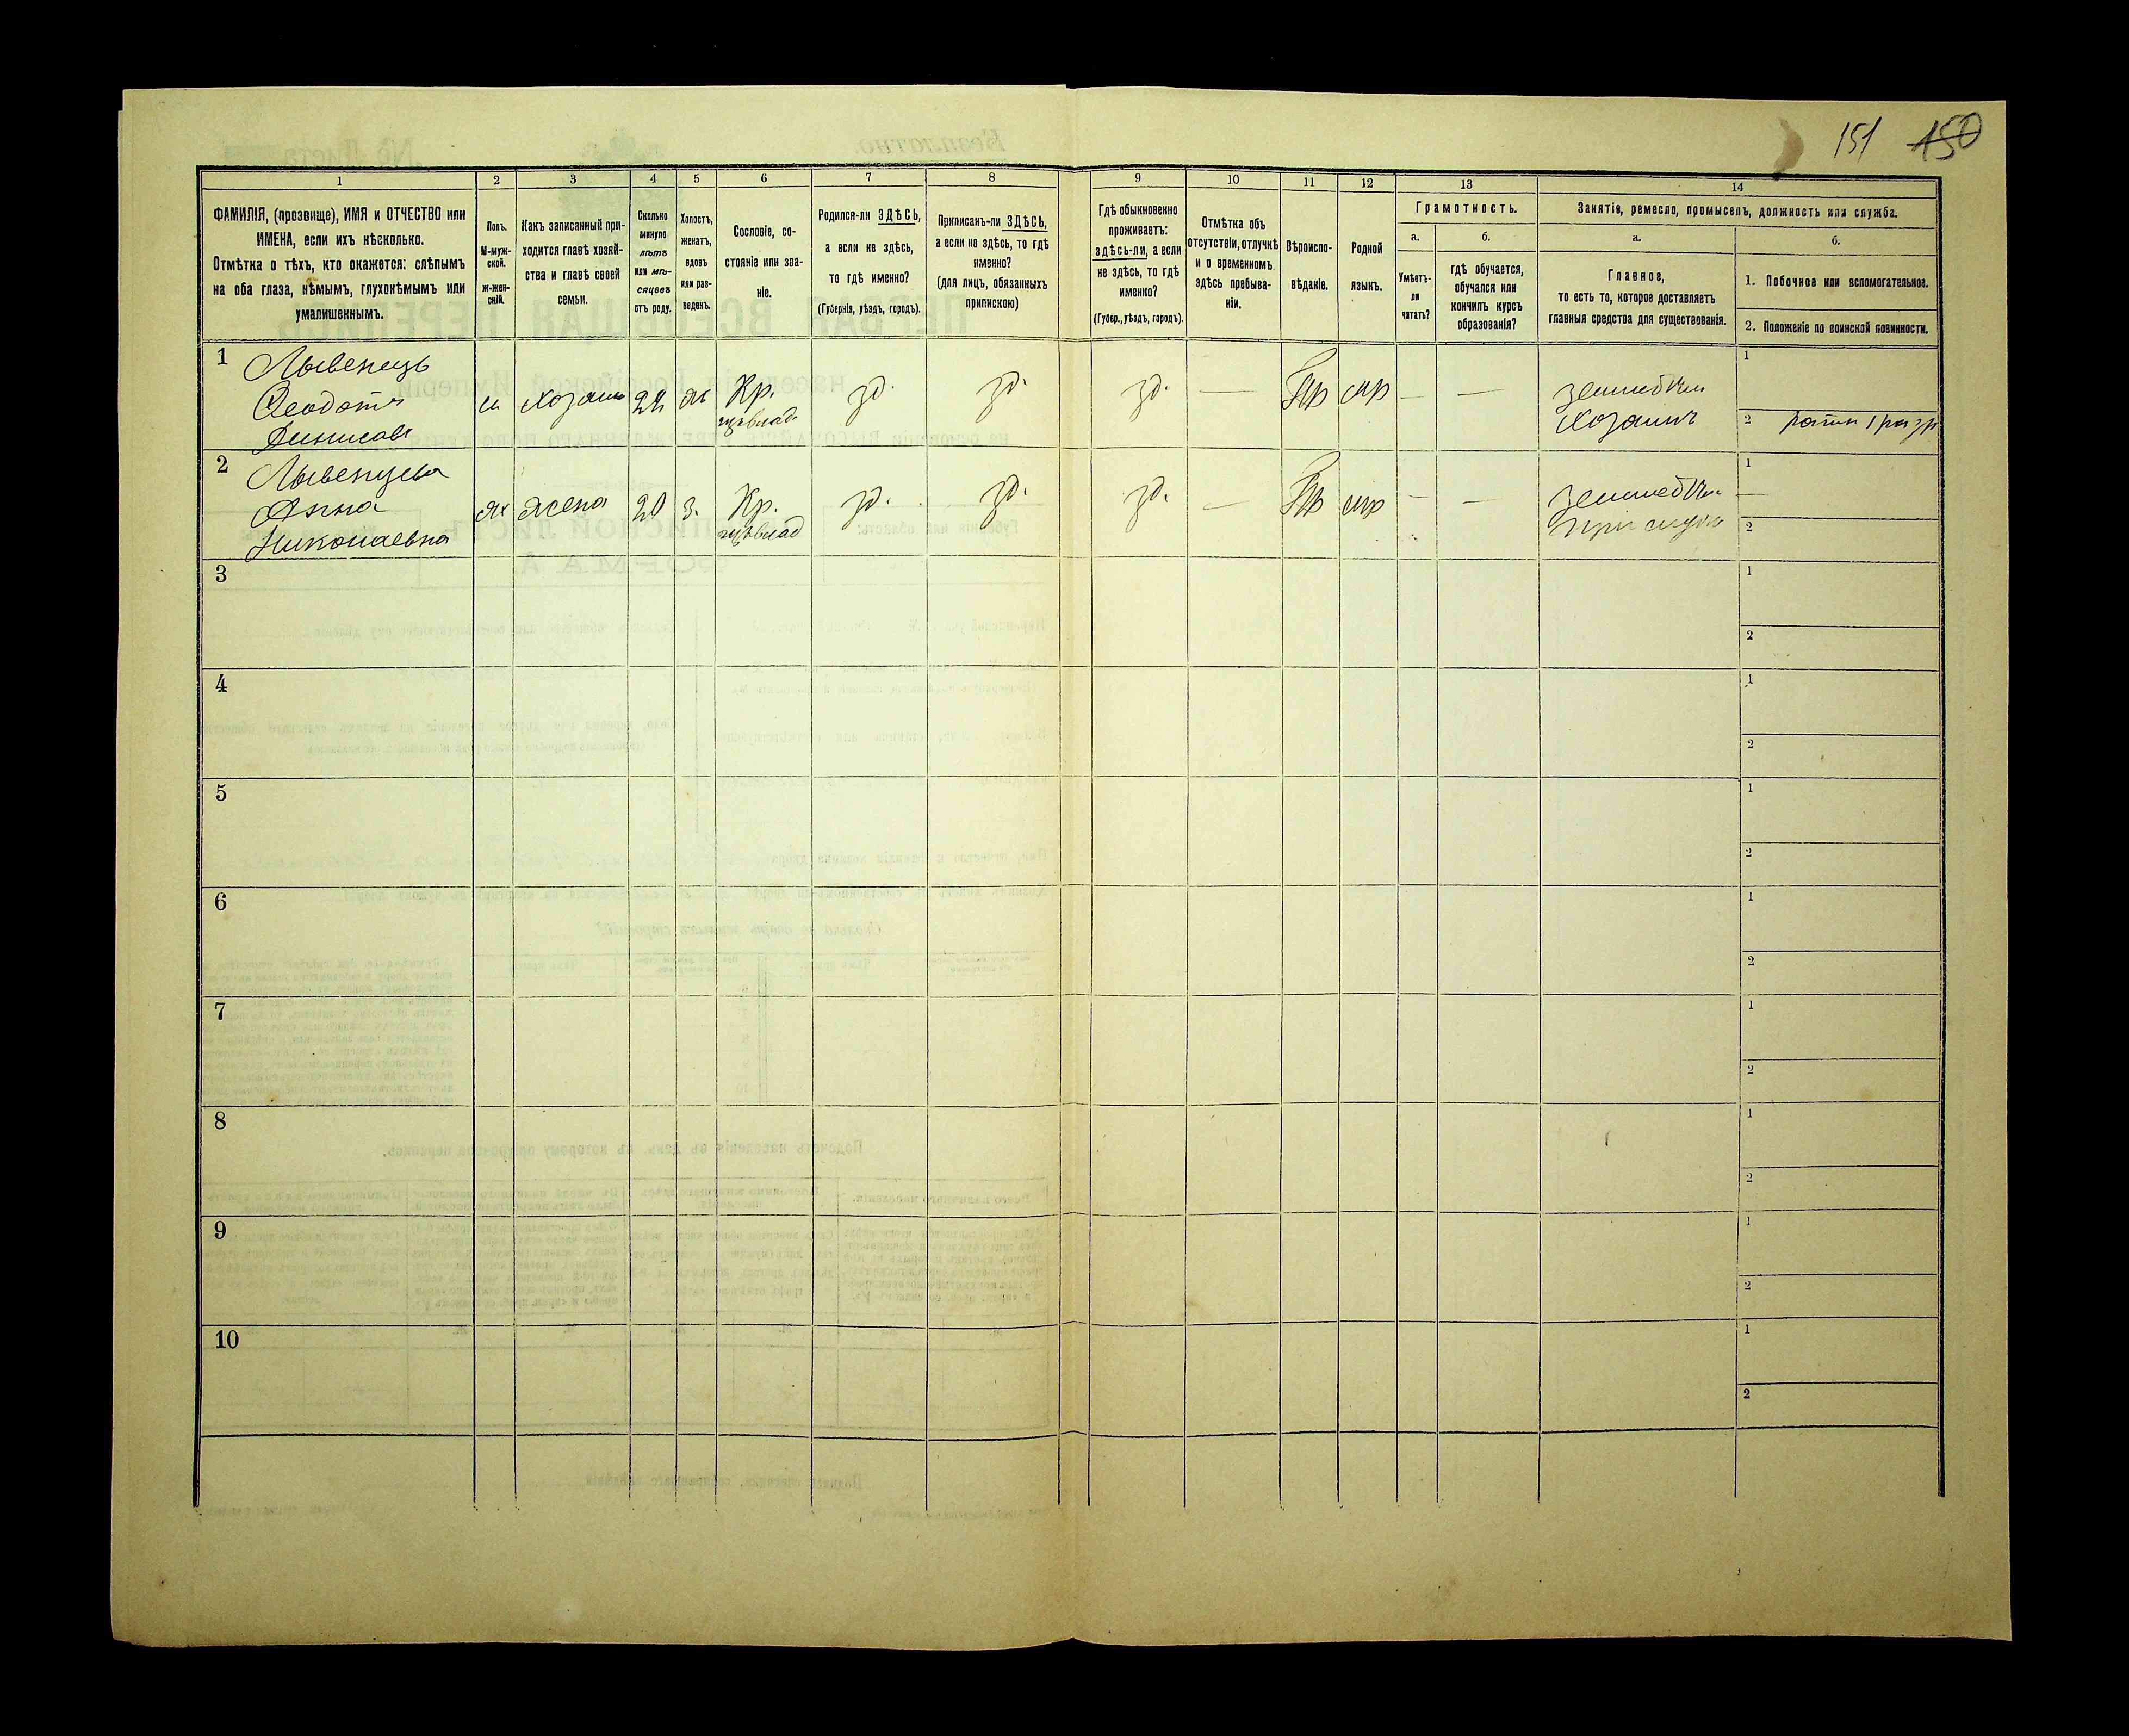 151 150
1 2 3 4 5 6 7 8 9 10 11 12 13 14
ФАМИЛІЯ, (прозвище), ИМЯ и ОТЧЕСТВО или
ИМЕНА, если ихъ нѣсколько.
Отмѣтка о тѣхъ, кто окажется: слѣпымъ
на оба глаза, нѣмымъ, глухонѣмымъ или
умалишеннымъ.
Полъ.
М-муж-
ской.
ж-жен-
скій.
Какъ записанный при-
ходится главѣ хозяй-
ства и главѣ своей
семьи.
Сколько
минуло
лѣтъ
или мѣ-
сяцевъ
отъ роду.
Холостъ,
женатъ,
вдовъ
или раз-
веденъ.
Сословіе, со-
стояніе или зва-
ніе.
Родился-ли ЗДѢСЬ,
а если не здѣсь,
то гдѣ именно?
(Губернія, уѣздъ, городъ).
Приписанъ-ли ЗДѢСЬ,
а если не здѣсь, то гдѣ
именно?
(для лицъ, обязанныхъ
припискою)
Гдѣ обыкновенно
проживаетъ:
здѣсь-ли, а если
не здѣсь, то гдѣ
именно?
(Губер., уѣздъ, городъ).
Отмѣтка объ
отсутствіи, отлучкѣ
и о временномъ
здѣсь пребыва-
ніи.
Вѣроиспо-
вѣданіе.
Родной
языкъ.
Грамотность.
а.
Умѣетъ-
ли
читать?
б.
гдѣ обучается,
обучался или
кончилъ курсъ
образованія?
Занятіе, ремесло, промыселъ, должность или служба.
а.
Главное,
то есть то, которое доставляетъ
главныя средства для существованія.
б.
1. Побочное или вспомогательное.
2. Положеніе по воинской повинности.
1 Лывенецъ
Ѳеодотъ
Денисовъ
м хозяинъ 24 ж Кр. зд. зд. зд. — Пр мр — —
земледѣл
хозяинъ
1
2 ратн 1 разр
2 Лывенцева
Анна
Николаевна
ж жена 20 з. Кр. зд. зд. зд. — Пр мр — —
земледѣл
1 —
2
3 1
2
4 1
2
5 1
2
6 1
2
7 1
2
8 1
2
9 1
2
10 1
2